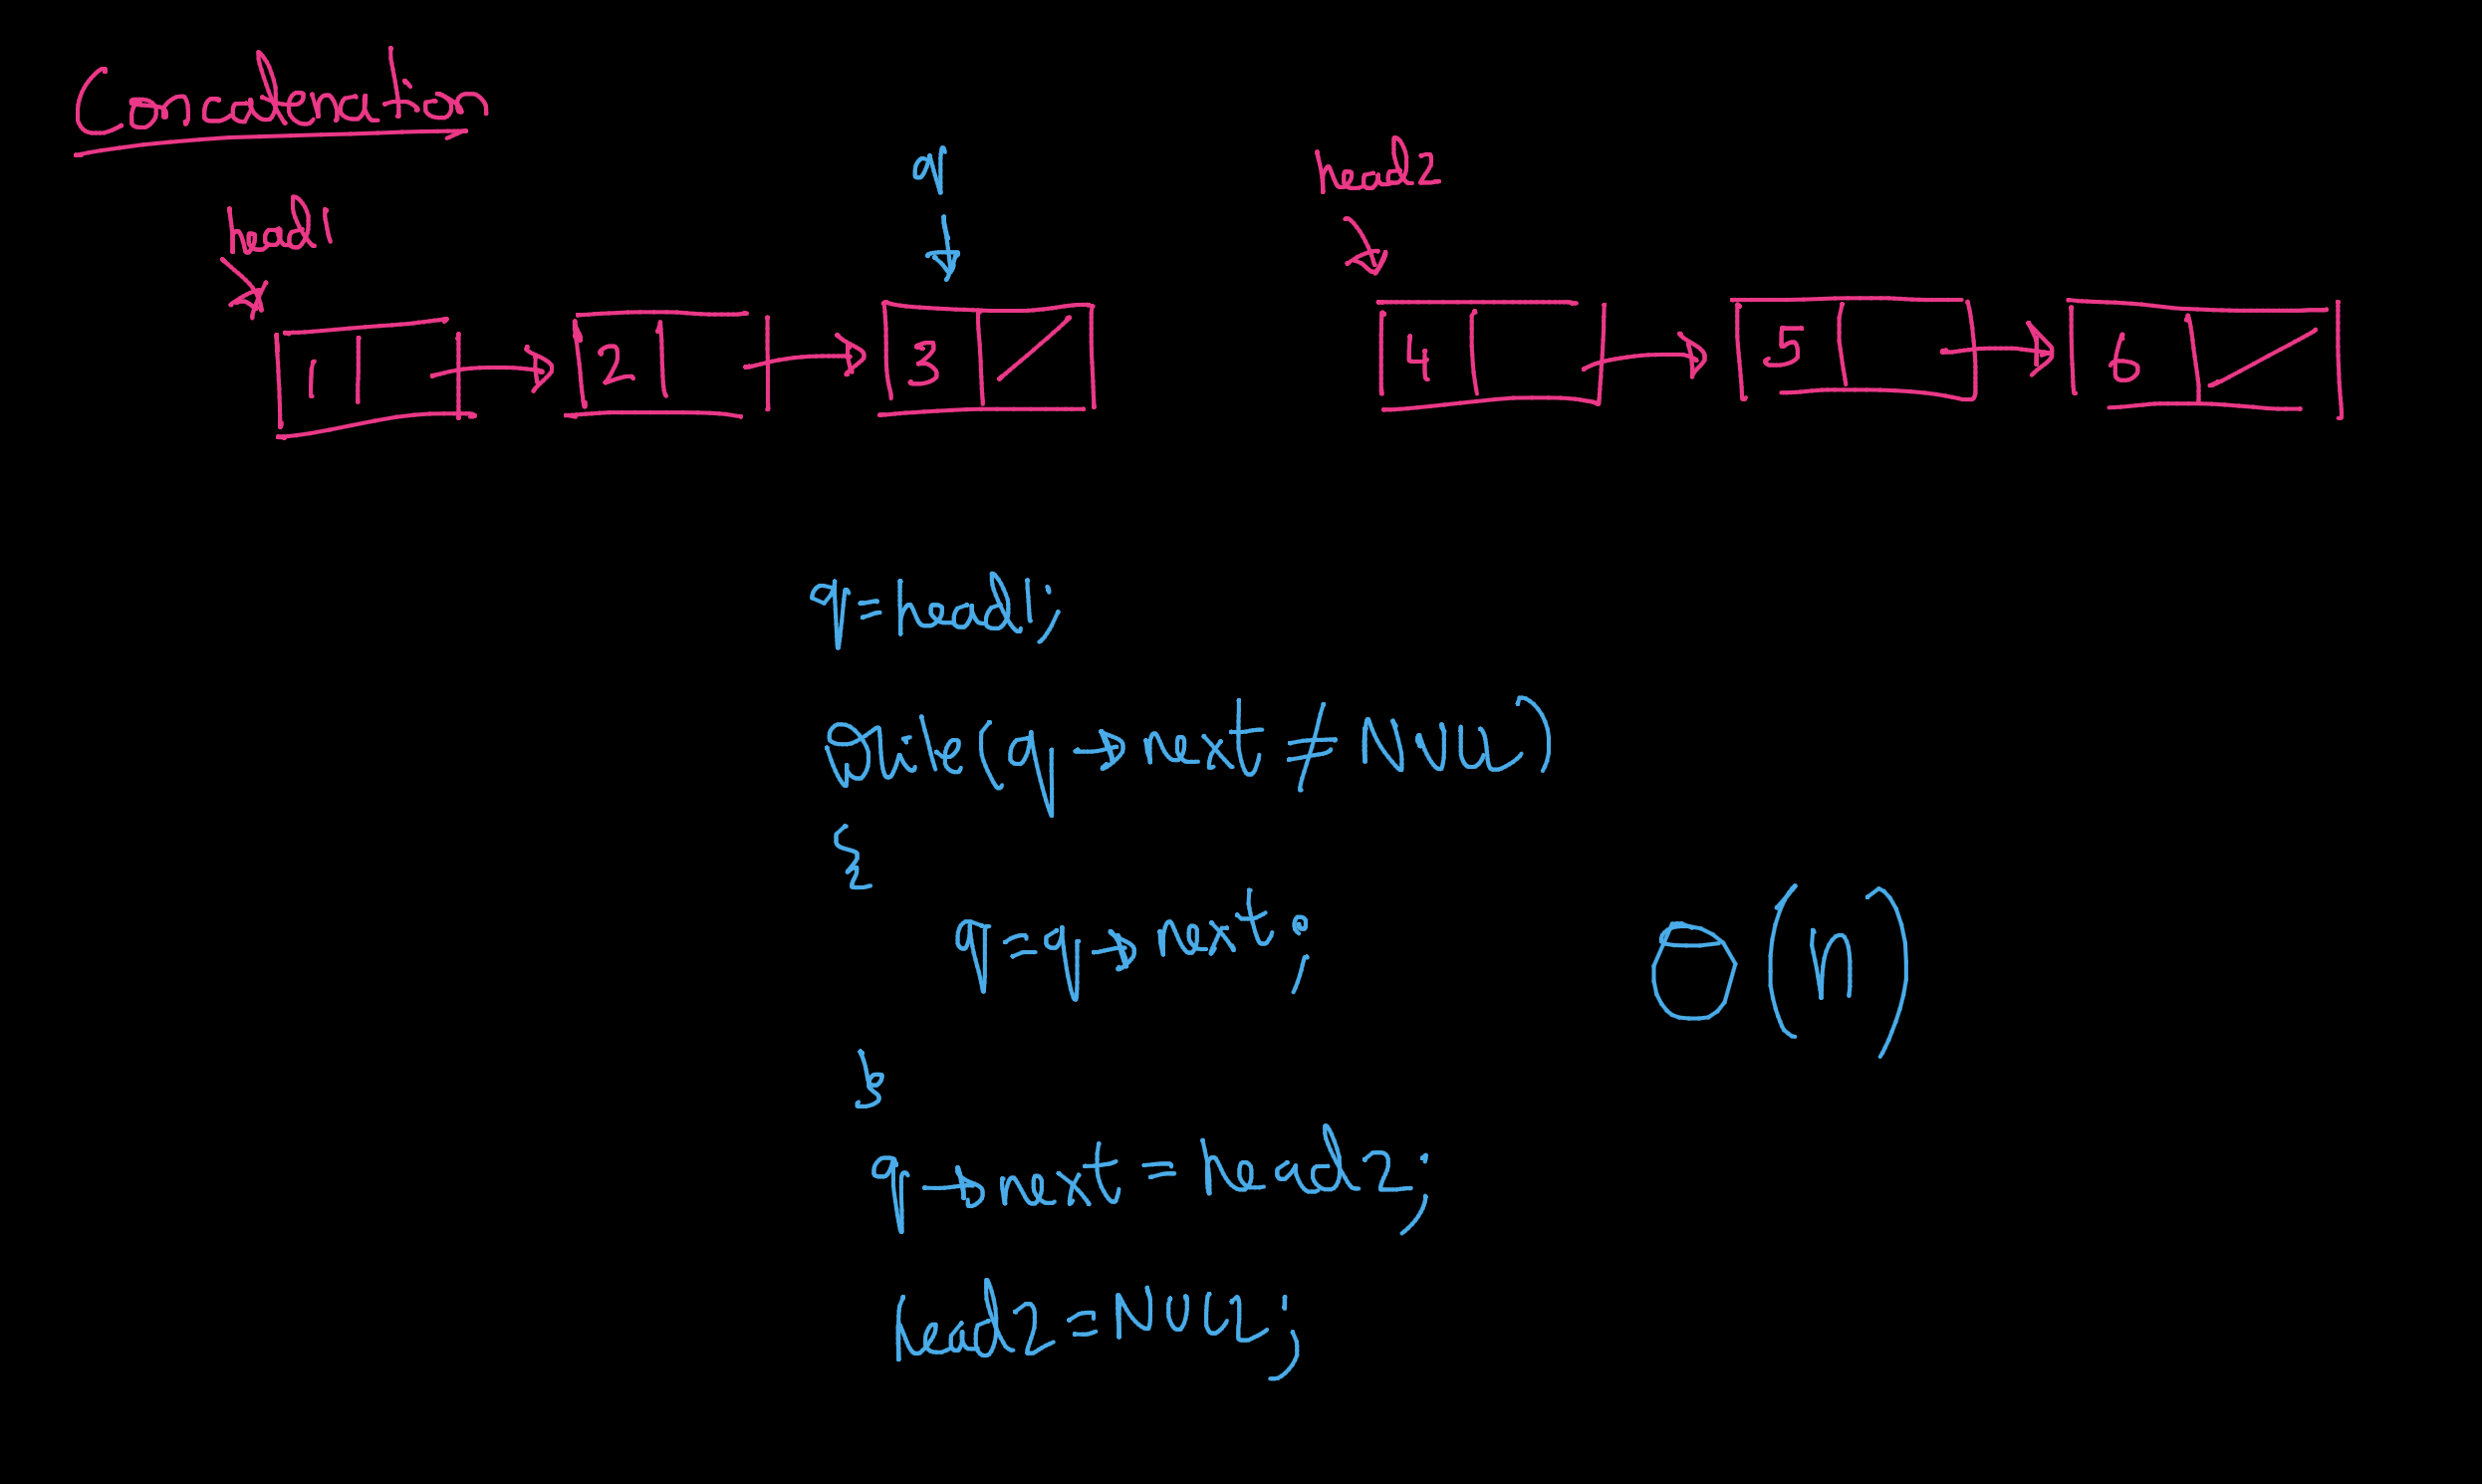 Concatenation
q
head2
head1
1 2 3 4 5 6
q=head1;
while(q→next ≠ NULL)
{
q=q→next;
}
O(n)
q→next=head2;
head2=NULL;